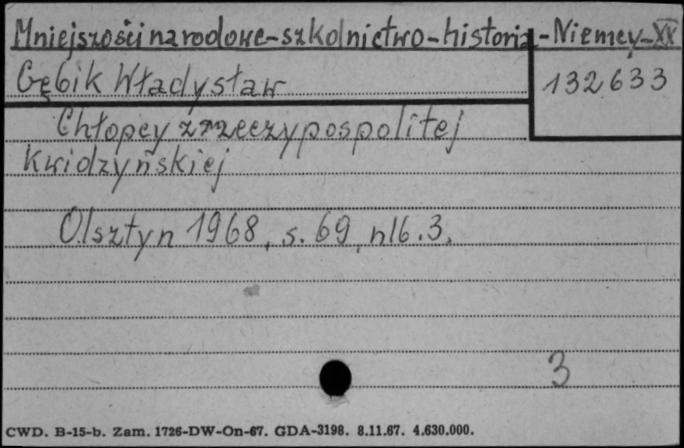 Mniejszości narodowe-szkolnictwo-historia-Niemcy-XX
Gębik Władysław
132633
Chłopcy z rzeczypospolitej
Kwidzyńskiej
Olsztyn 1968, s. 69, nlb. 3.
3
CWD. B-15-b. Zam. 1726-DW-On-67. GDA-3198. 8.11.67. 4.630.000.